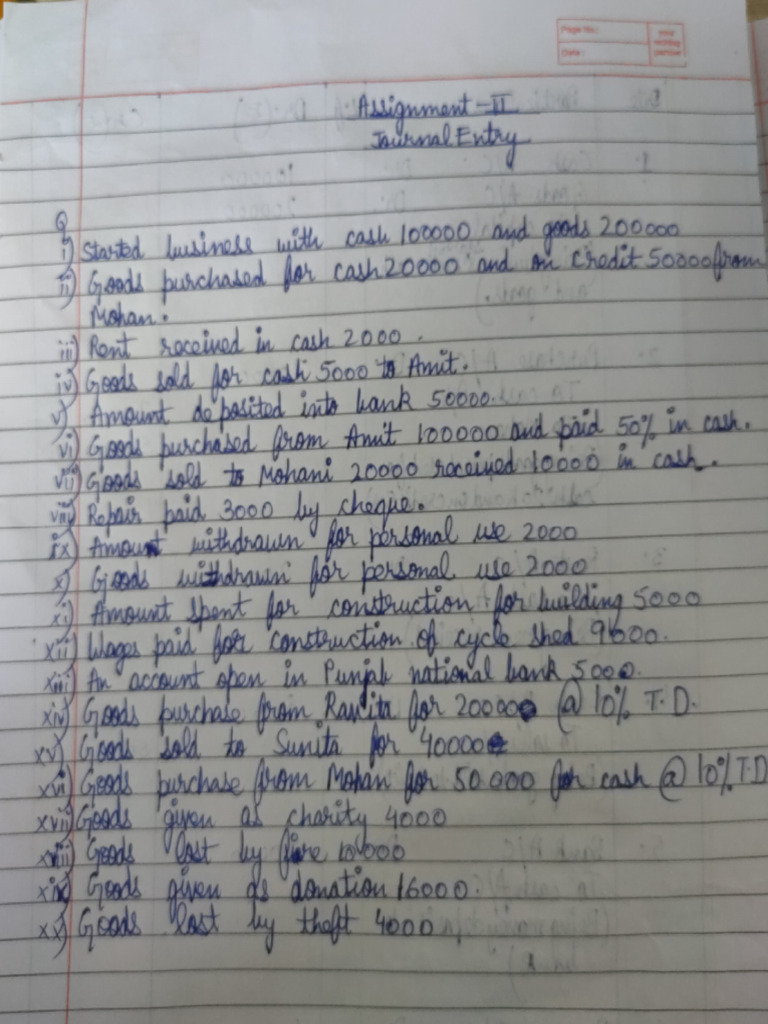 Page No.:
Date:
your
writing
partner
Assignment - II
Journal Entry
Q
i) Started business with cash 100000 and goods 200000
ii) Goods purchased for cash 20000 and on credit 50000 from
Mohan.
iii) Rent received in cash 2000.
iv) Goods sold for cash 5000 to Amit.
v) Amount deposited into bank 50000.
vi) Goods purchased from Amit 100000 and paid 50% in cash.
vii) Goods sold to Mohani 20000 received 10000 in cash.
viii) Repair paid 3000 by cheque.
ix) Amount withdrawn for personal use 2000
x) Goods withdrawn for personal use 2000
xi) Amount spent for construction for building 5000
xii) Wages paid for construction of cycle shed 9600.
xiii) An account open in Punjab national bank 5000.
xiv) Goods purchase from Ravita for 20000 @ 10% T.D.
xv) Goods sold to Sunita for 40000
xvi) Goods purchase from Mohan for 50.000 for cash @ 10% T.D
xvii) Goods given as charity 4000
xviii) Goods lost by fire 10000
xix) Goods given as donation 16000.
xx) Goods lost by theft 4000